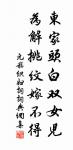 東家頭白雙女兒
為解挑紋嫁不得
元稹織婦詞詞典網専